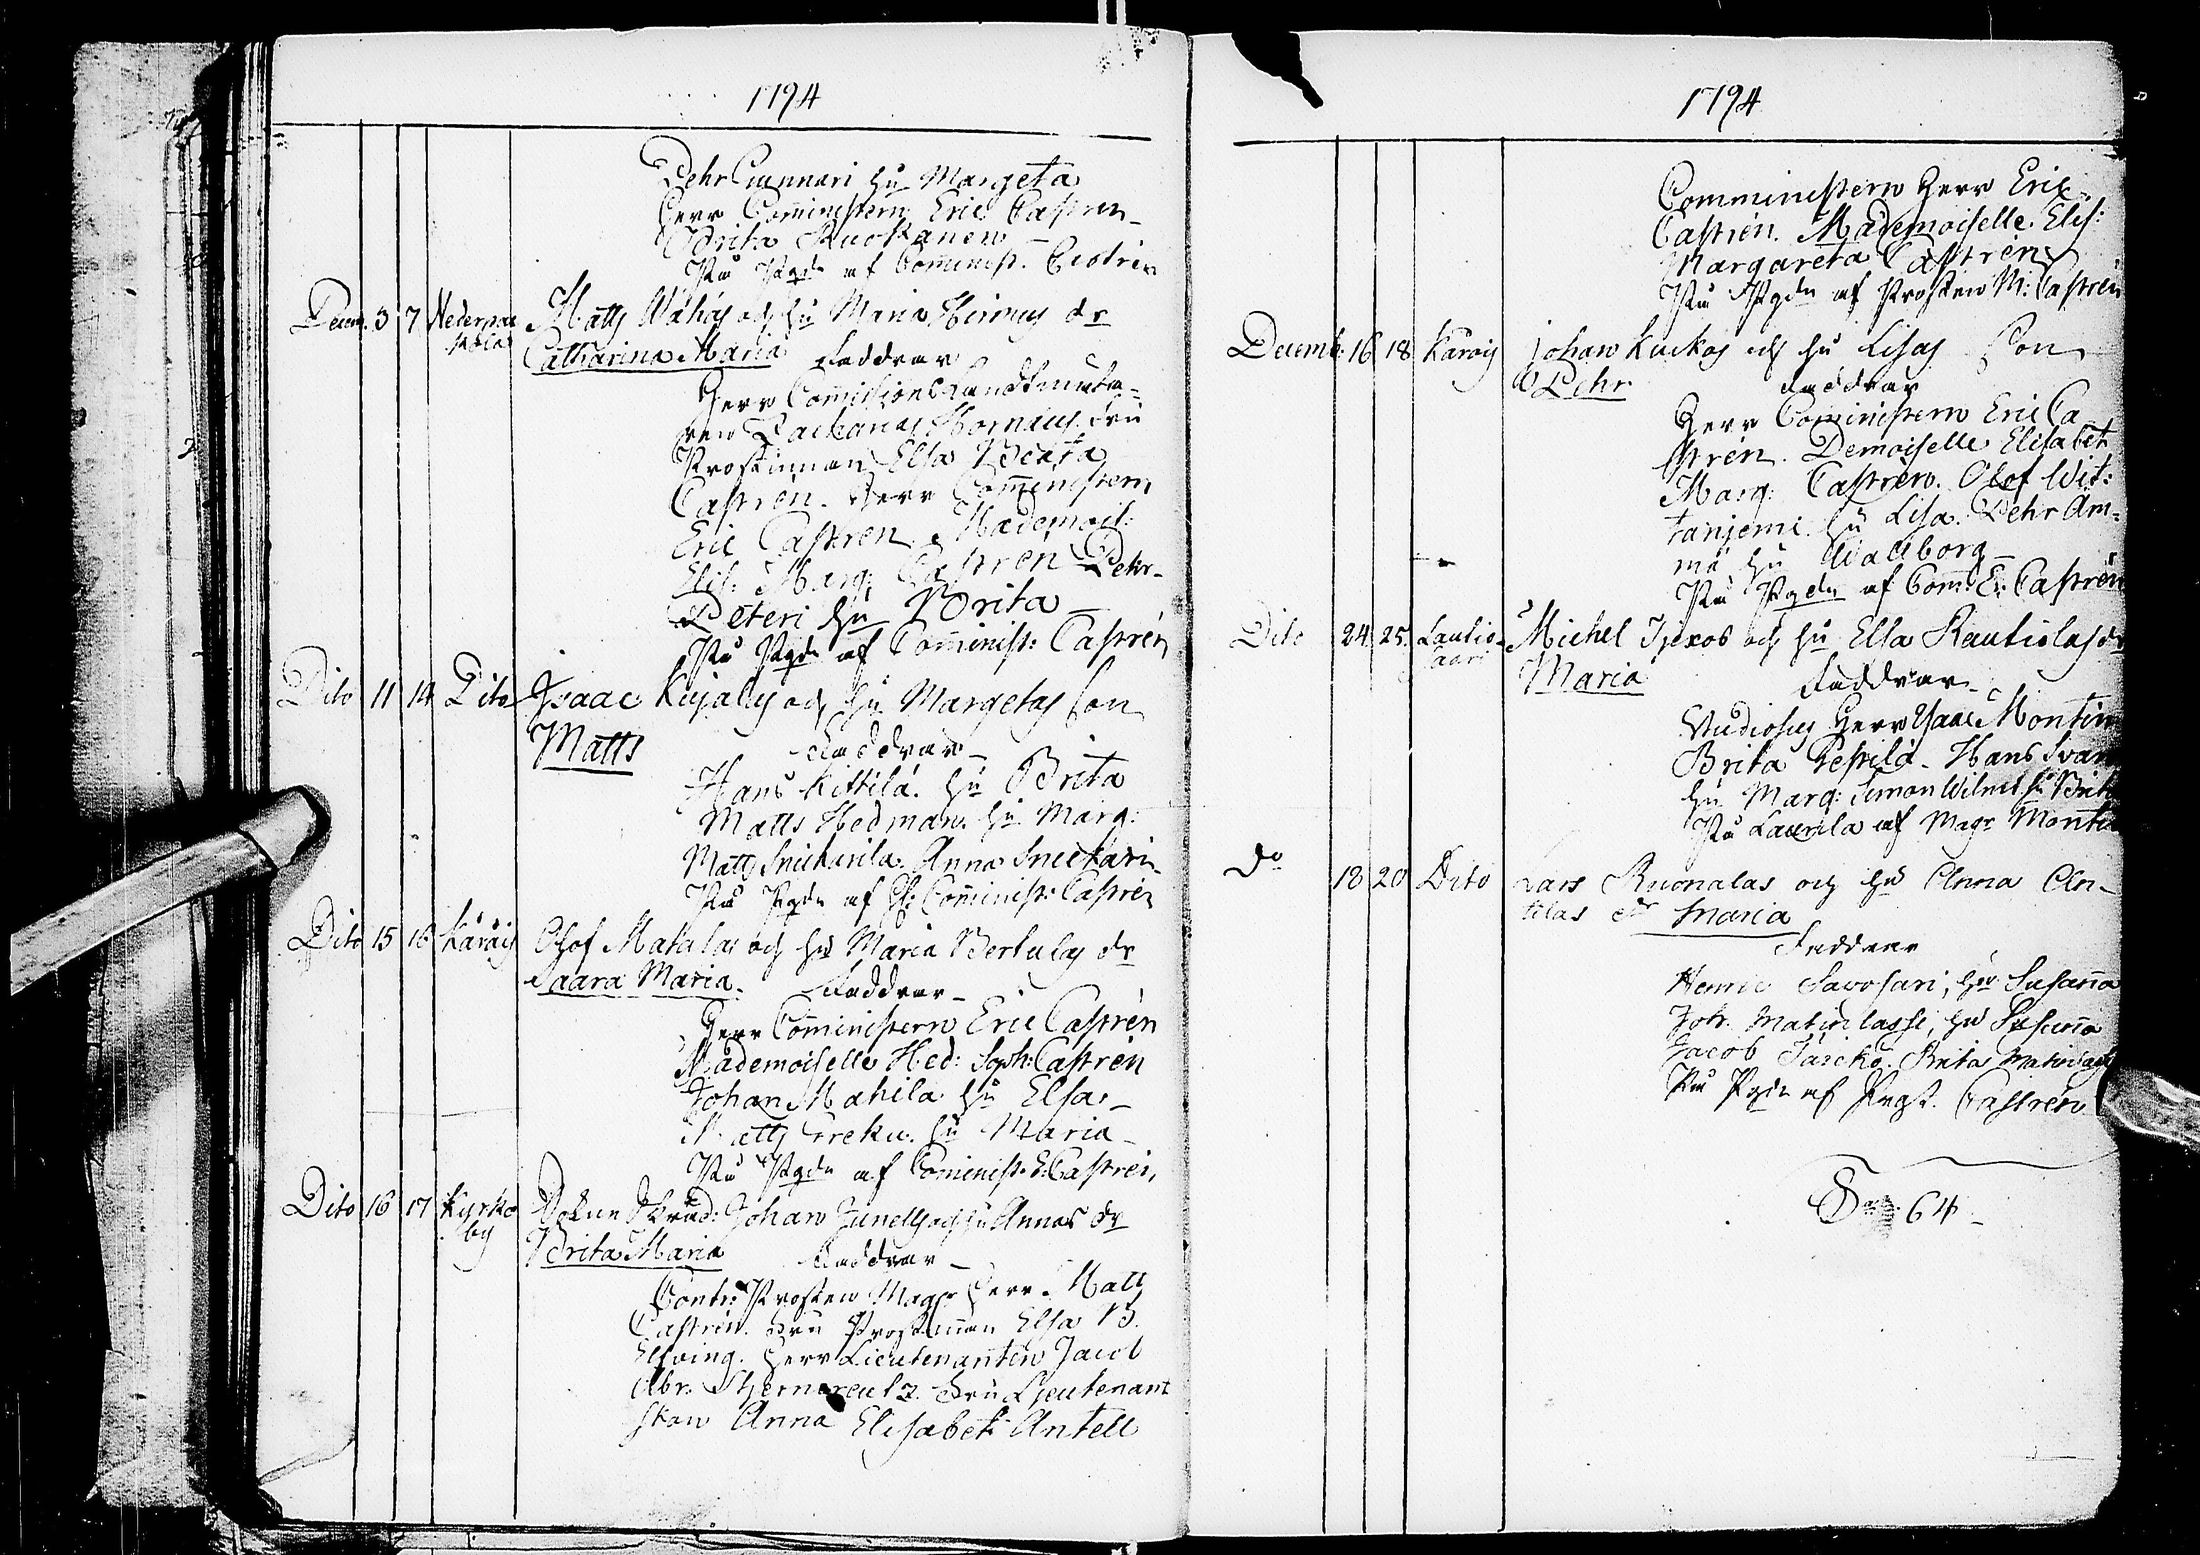 1794
Pehr Gunnari hu Margeta
Herr Comministern Eric Castren
Brita Ruokanen
Pu Pgdn af Comminist. Castrén
Decem. 3 7 Nederpaakola Matts Wähäs och hu Maria Hirmus dr
Catharina Maria Faddrar
Herr Commissions Landtmäta-
ren Zacharias Hornæus. Fru
Prostinnan Elsa Beata
Castrén. Herr Comministern
Eric Castren. Mademois:
Elis: Marg: Castrén Pehr
Peteri hu Brita
Pu Pgdn af Comminist: Castrén
Dito 11 14 Dito Isaac Kujalas och hu Margetas son
Matts Faddrar
Hans Kittilä. hu Brita
Matts Hedman. hu Marg:
Matts Snickarila. Anna Snickari
Pu Pgdn af H: Comminist: Castrén
Dito 15 16 Karais Olof Matalas och hu Maria Bertulas dr
Saara Maria. Faddrar
Herr Comministern Eric Castrén
Mademoiselle Hed: Soph: Castrén
Johan Mahila hu Elsa
Matts Greku. hu Maria
Pu Pgdn af Cominist. E: Castrén
Dito 16 17 Kyrkoby Skräd: Johan Junells och hu Annas dr
Brita Maria Faddrar
Contr: Prosten Magr Herr Matts
Castrén. Fru Prostinnan Elsa B.
Elfving. Herr Lieutenanten Jacob
Abr. Stjerncreutz. Fru Lieutenant
skan Anna Elisabet Antell
1794
Comministern Herr Eric
Castrén. Mademoiselle Elis:
Margareta Castrén
Pu Pgdn af Prosten M: Castrén
Decemb: 16 18 Karais Johan Kuckos och hu Lisas Son
Pehr Faddrar
Herr Cominstern Eric Ca
strén. Demoiselle Elisabet
Marg: Castrén. Olof Wit:
tanjemi hu Lisa. Pehr Am-
mä hu Wallborg
Pu Pgdn af Comm: E: Castrén
Dito 24 25. Lautiosaari Michel Ijexos och hu Elsa Rautiolas dr
Maria Faddrar
Studiosus Herr Isaac Montin
Brita Pessilä. Hans
hu Marg: Simon Wilmi hu Brita
Pu Laurila af Magr Montin
Do 18 20 Dito Lars Ruonalas och hu Anna An-
tilas dr Maria
Faddrar
Henric Savosari, hu Susanna
Joh. Matinlassi, hu Susanna
Jacob Brita Matinlassi
Pu Pgdn af Prost. Castrén
64